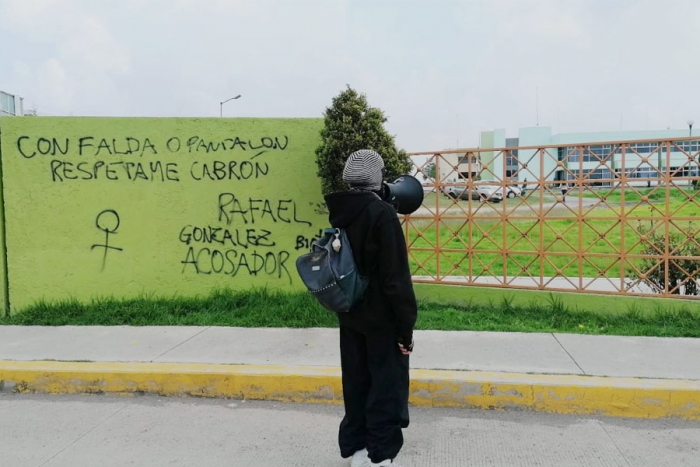 CON FALDA O PANTALON
RESPETAME CABRÓN
RAFAEL
GONZALEZ
ACOSADOR